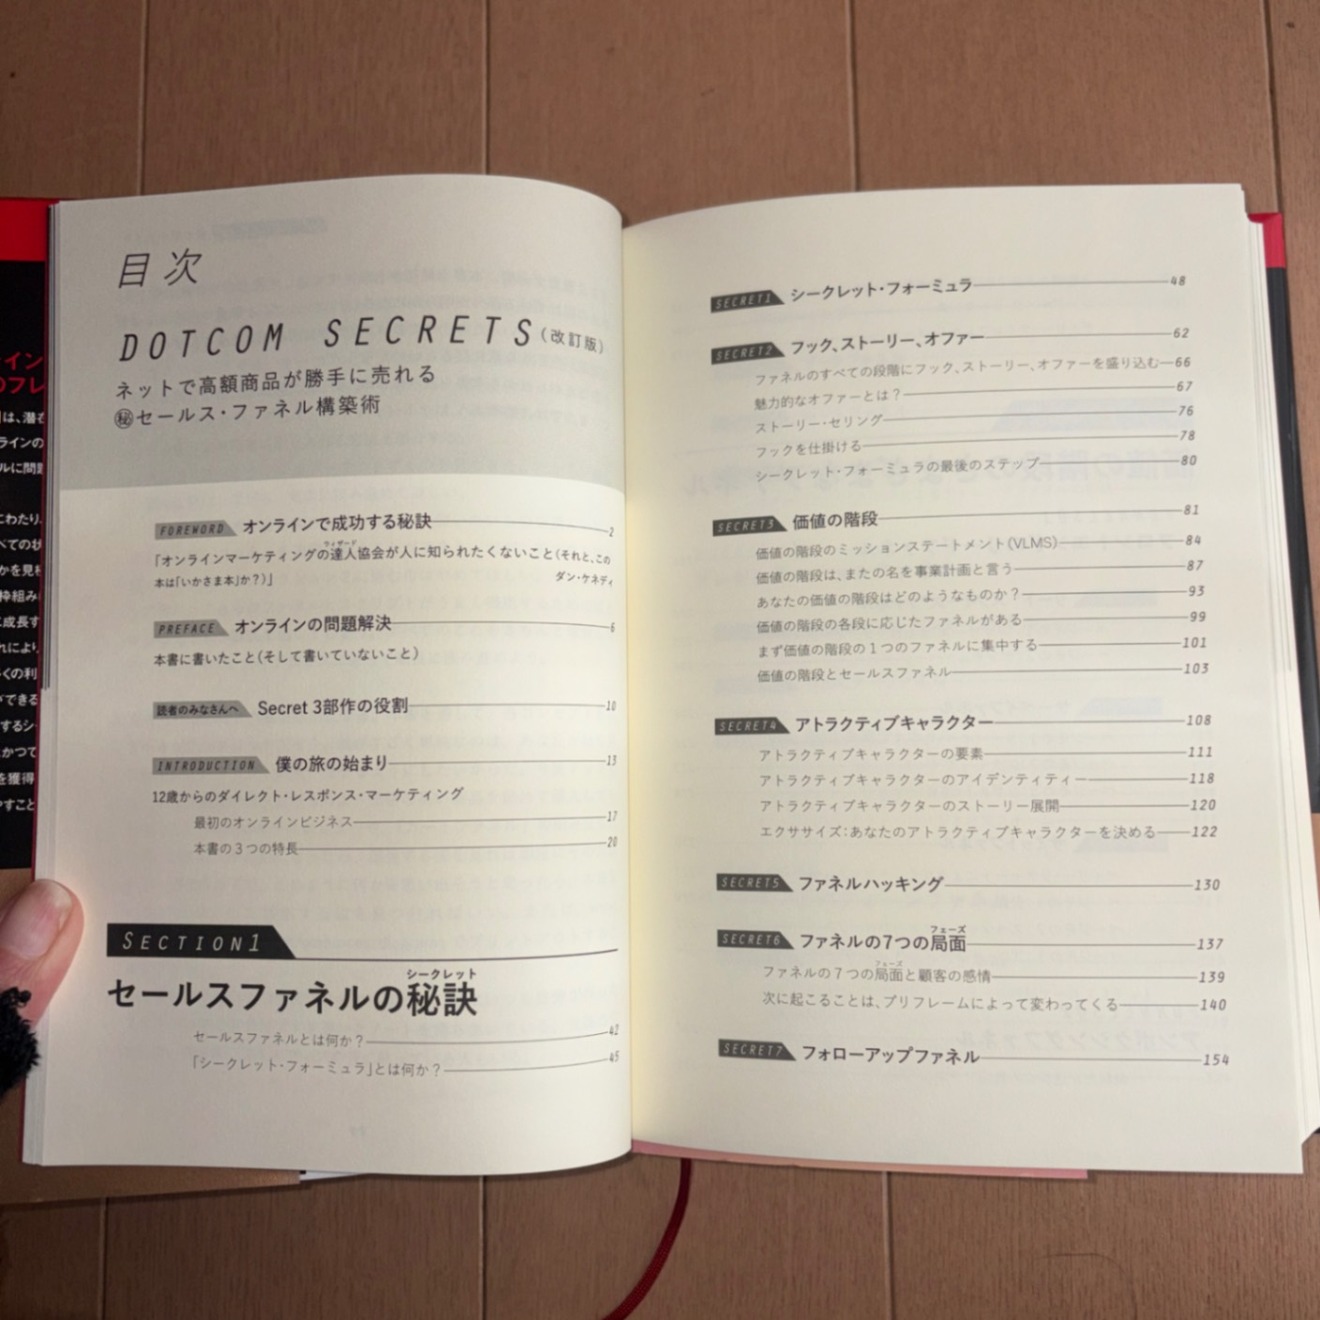 目次
DOTCOM SECRETS(改訂版)
ネットで高額商品が勝手に売れる
㊙セールス・ファネル構築術
FOREWORD オンラインで成功する秘訣 2
「オンラインマーケティングの達人協会が人に知られたくないこと(それと、この
ウィザード
本は「いかさま本」か?)」 ダン・ケネディ
PREFACE オンラインの問題解決 6
本書に書いたこと(そして書いていないこと)
読者のみなさんへ Secret 3部作の役割 10
INTRODUCTION 僕の旅の始まり 13
12歳からのダイレクト・レスポンス・マーケティング
最初のオンラインビジネス 17
本書の3つの特長 20
SECTION1
シークレット
セールスファネルの秘訣
セールスファネルとは何か? 42
「シークレット・フォーミュラ」とは何か? 45
SECRET1 シークレット・フォーミュラ 48
SECRET2 フック、ストーリー、オファー 62
ファネルのすべての段階にフック、ストーリー、オファーを盛り込む 66
魅力的なオファーとは? 67
ストーリー・セリング 76
フックを仕掛ける 78
シークレット・フォーミュラの最後のステップ 80
SECRET3 価値の階段 81
価値の階段のミッションステートメント(VLMS) 84
価値の階段は、またの名を事業計画と言う 87
あなたの価値の階段はどのようなものか? 93
価値の階段の各段に応じたファネルがある 99
まず価値の階段の1つのファネルに集中する 101
価値の階段とセールスファネル 103
SECRET4 アトラクティブキャラクター 108
アトラクティブキャラクターの要素 111
アトラクティブキャラクターのアイデンティティー 118
アトラクティブキャラクターのストーリー展開 120
エクササイズ:あなたのアトラクティブキャラクターを決める 122
SECRET5 ファネルハッキング 130
フェーズ
SECRET6 ファネルの7つの局面 137
フェーズ
ファネルの7つの局面と顧客の感情 139
次に起こることは、プリフレームによって変わってくる 140
SECRET7 フォローアップファネル 154